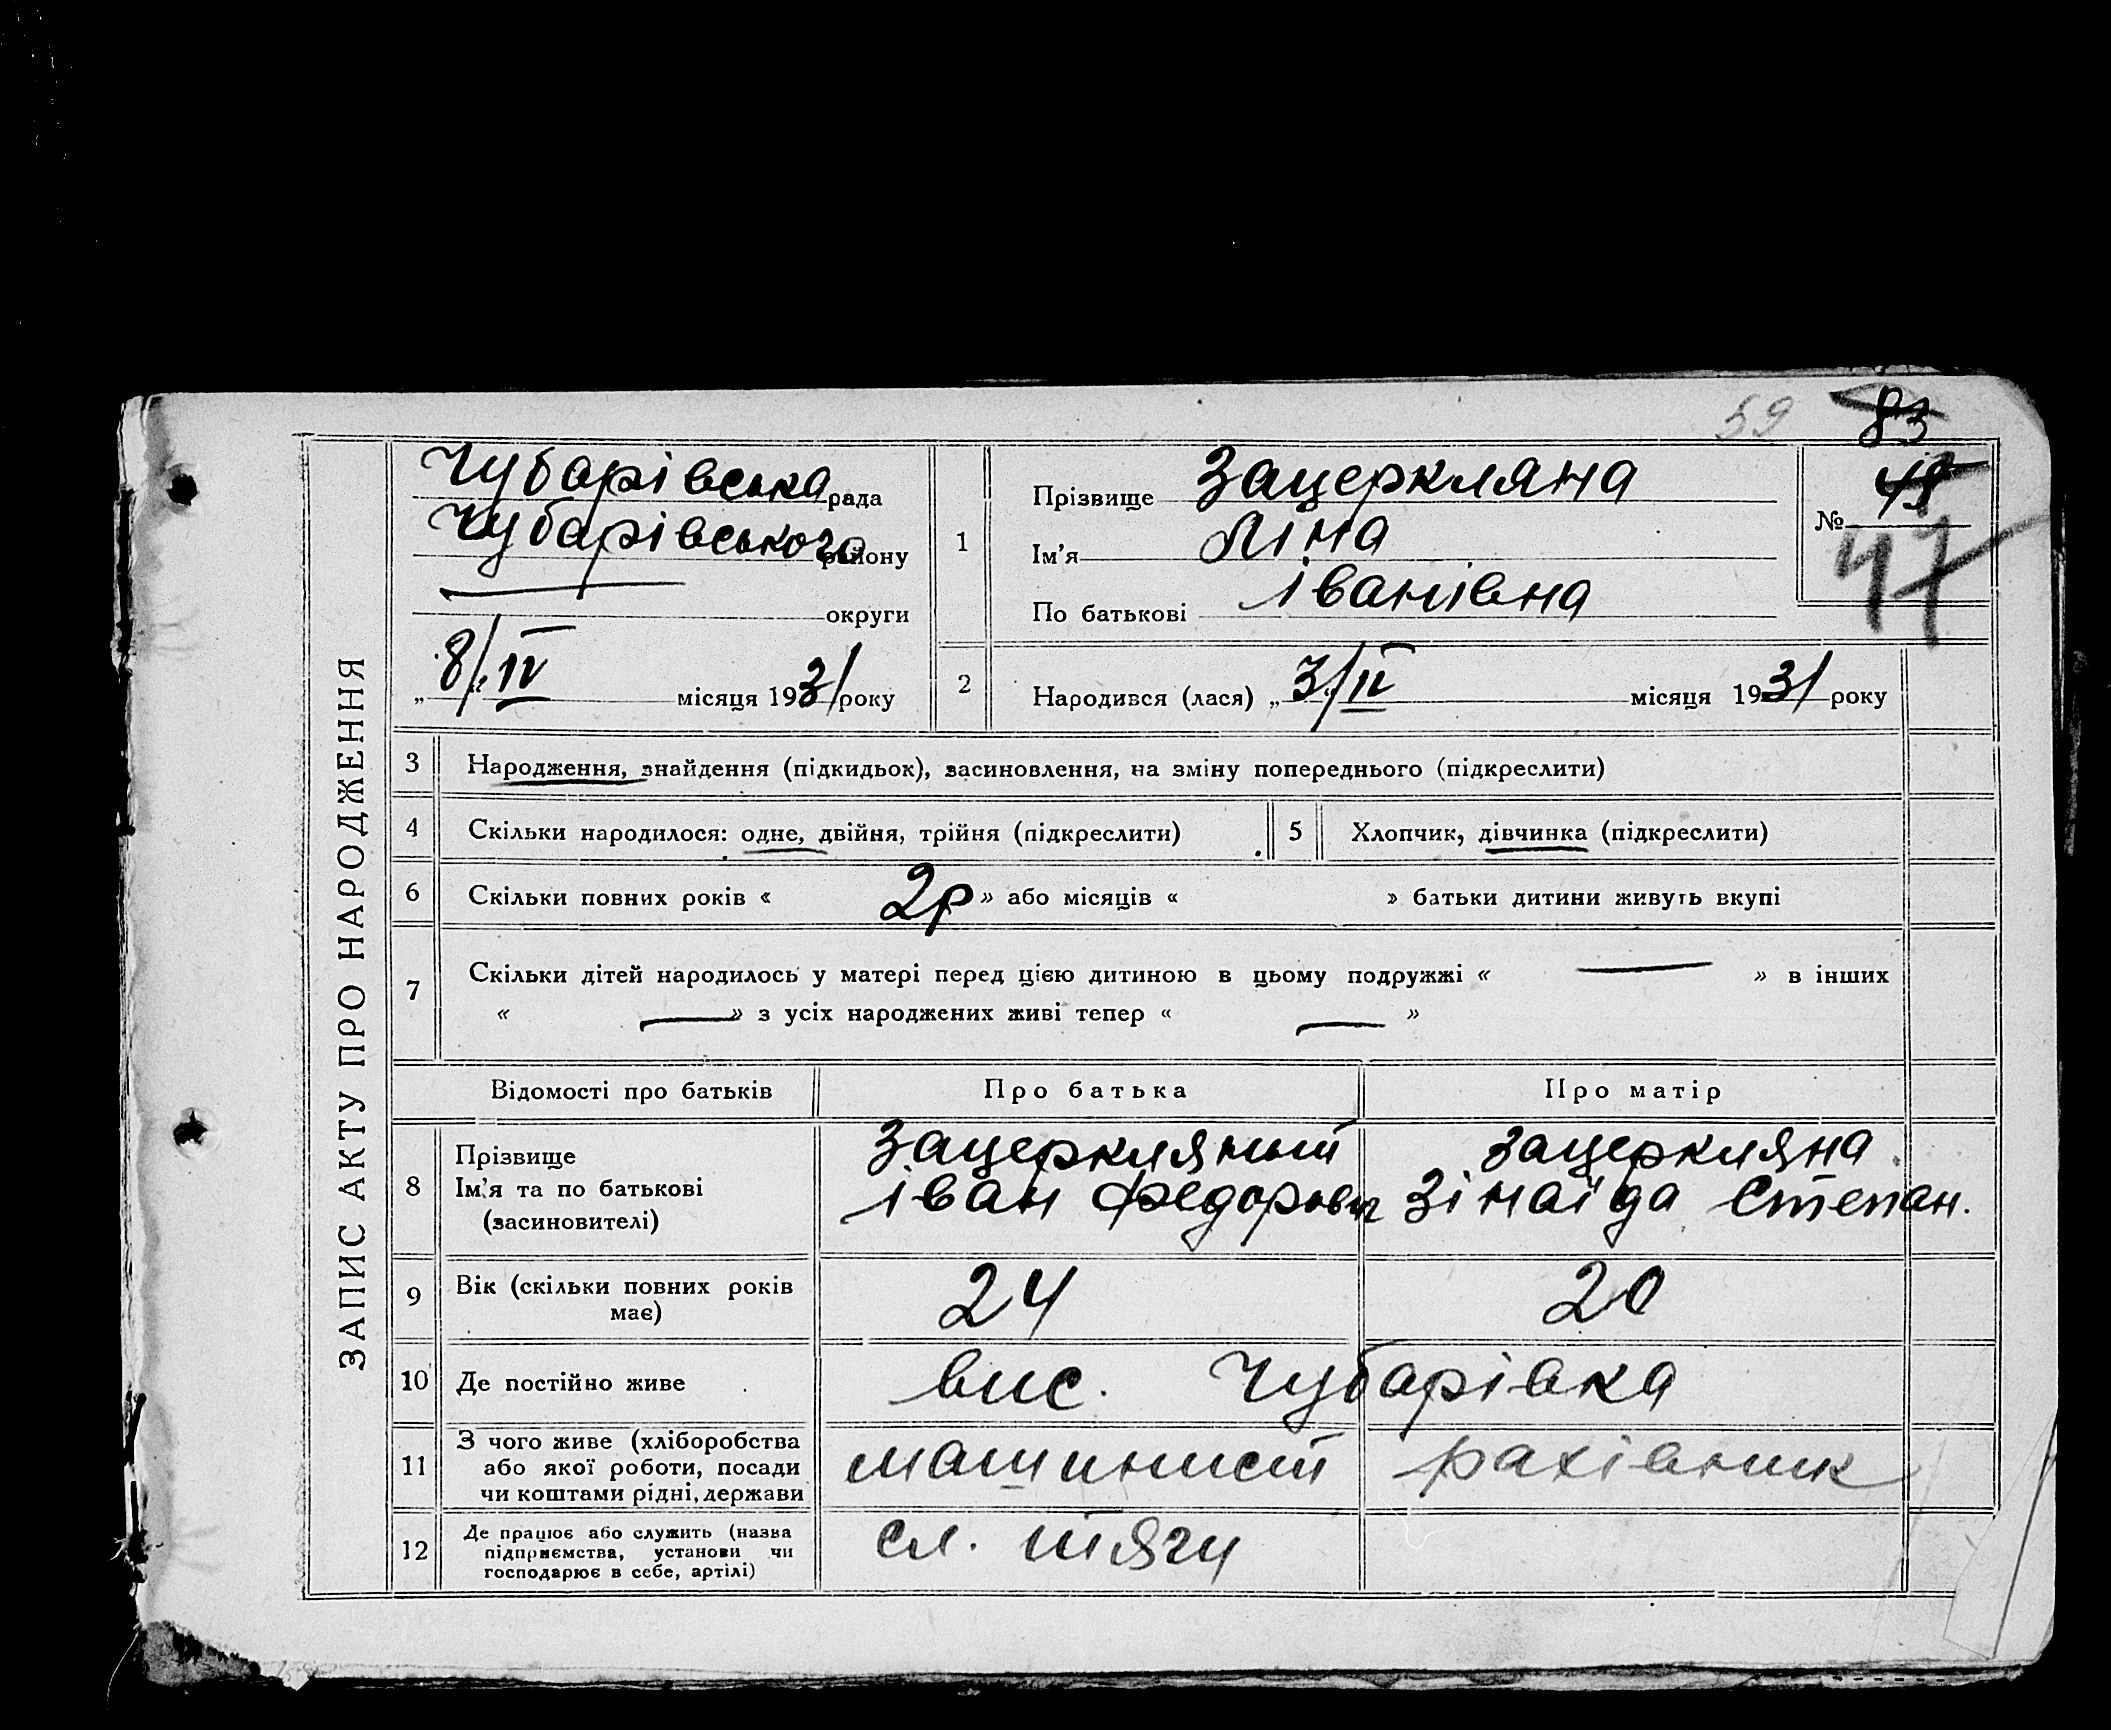 59 83
ЗАПИС АКТУ ПРО НАРОДЖЕННЯ
Чубарівська рада
Чубарівського району
округи
„8/“ IV місяця 1931 року
1
Прізвище Зацеркляна
Ім’я Ліна
По батькові Іванівна
№ 49
47
2 Народився (лася) „3/“ IV місяця 1931 року
3 Народження, знайдення (підкидьок), засиновлення, на зміну попереднього (підкреслити)
4 Скільки народилося: одне, двійня, трійня (підкреслити) 5 Хлопчик, дівчинка (підкреслити)
6 Скільки повних років « 2р » або місяців « » батьки дитини живуть вкупі
7 Скільки дітей народилось у матері перед цією дитиною в цьому подружжі « — » в інших
« — » з усіх народжених живі тепер « — »
Відомості про батьків Про батька Про матір
8 Прізвище Зацеркляний Зацеркляна
Ім’я та по батькові Іван Федорович Зінаїда Степан.
(засиновителі)
9 Вік (скільки повних років має) 24 20
10 Де постійно живе вис. Чубарівка
11 З чого живе (хліборобства або якої роботи, посади чи коштами рідні, держави машинист рахівник
12 Де працює або служить (назва підприємства, установи чи господарює в себе, артілі) сл. тяги